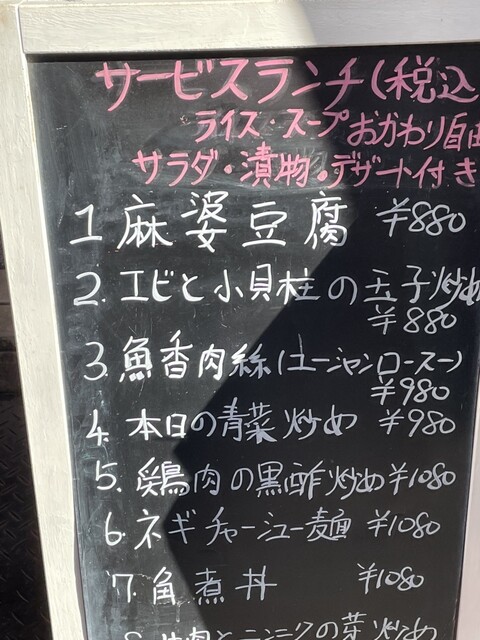 サービスランチ(税込
ライス・スープおかわり自由
サラダ・漬物・デザート付き
1 麻婆豆腐 ¥880
2. エビと小貝柱の玉子炒め
¥880
3. 魚香肉絲(ユージャンロースー)
¥980
4. 本日の青菜炒め ¥980
5. 鶏肉の黒酢炒め ¥1080
6. ネギチャーシュー麺 ¥1080
7. 角煮丼 ¥1080
8. 牛肉とニンニクの芽炒め